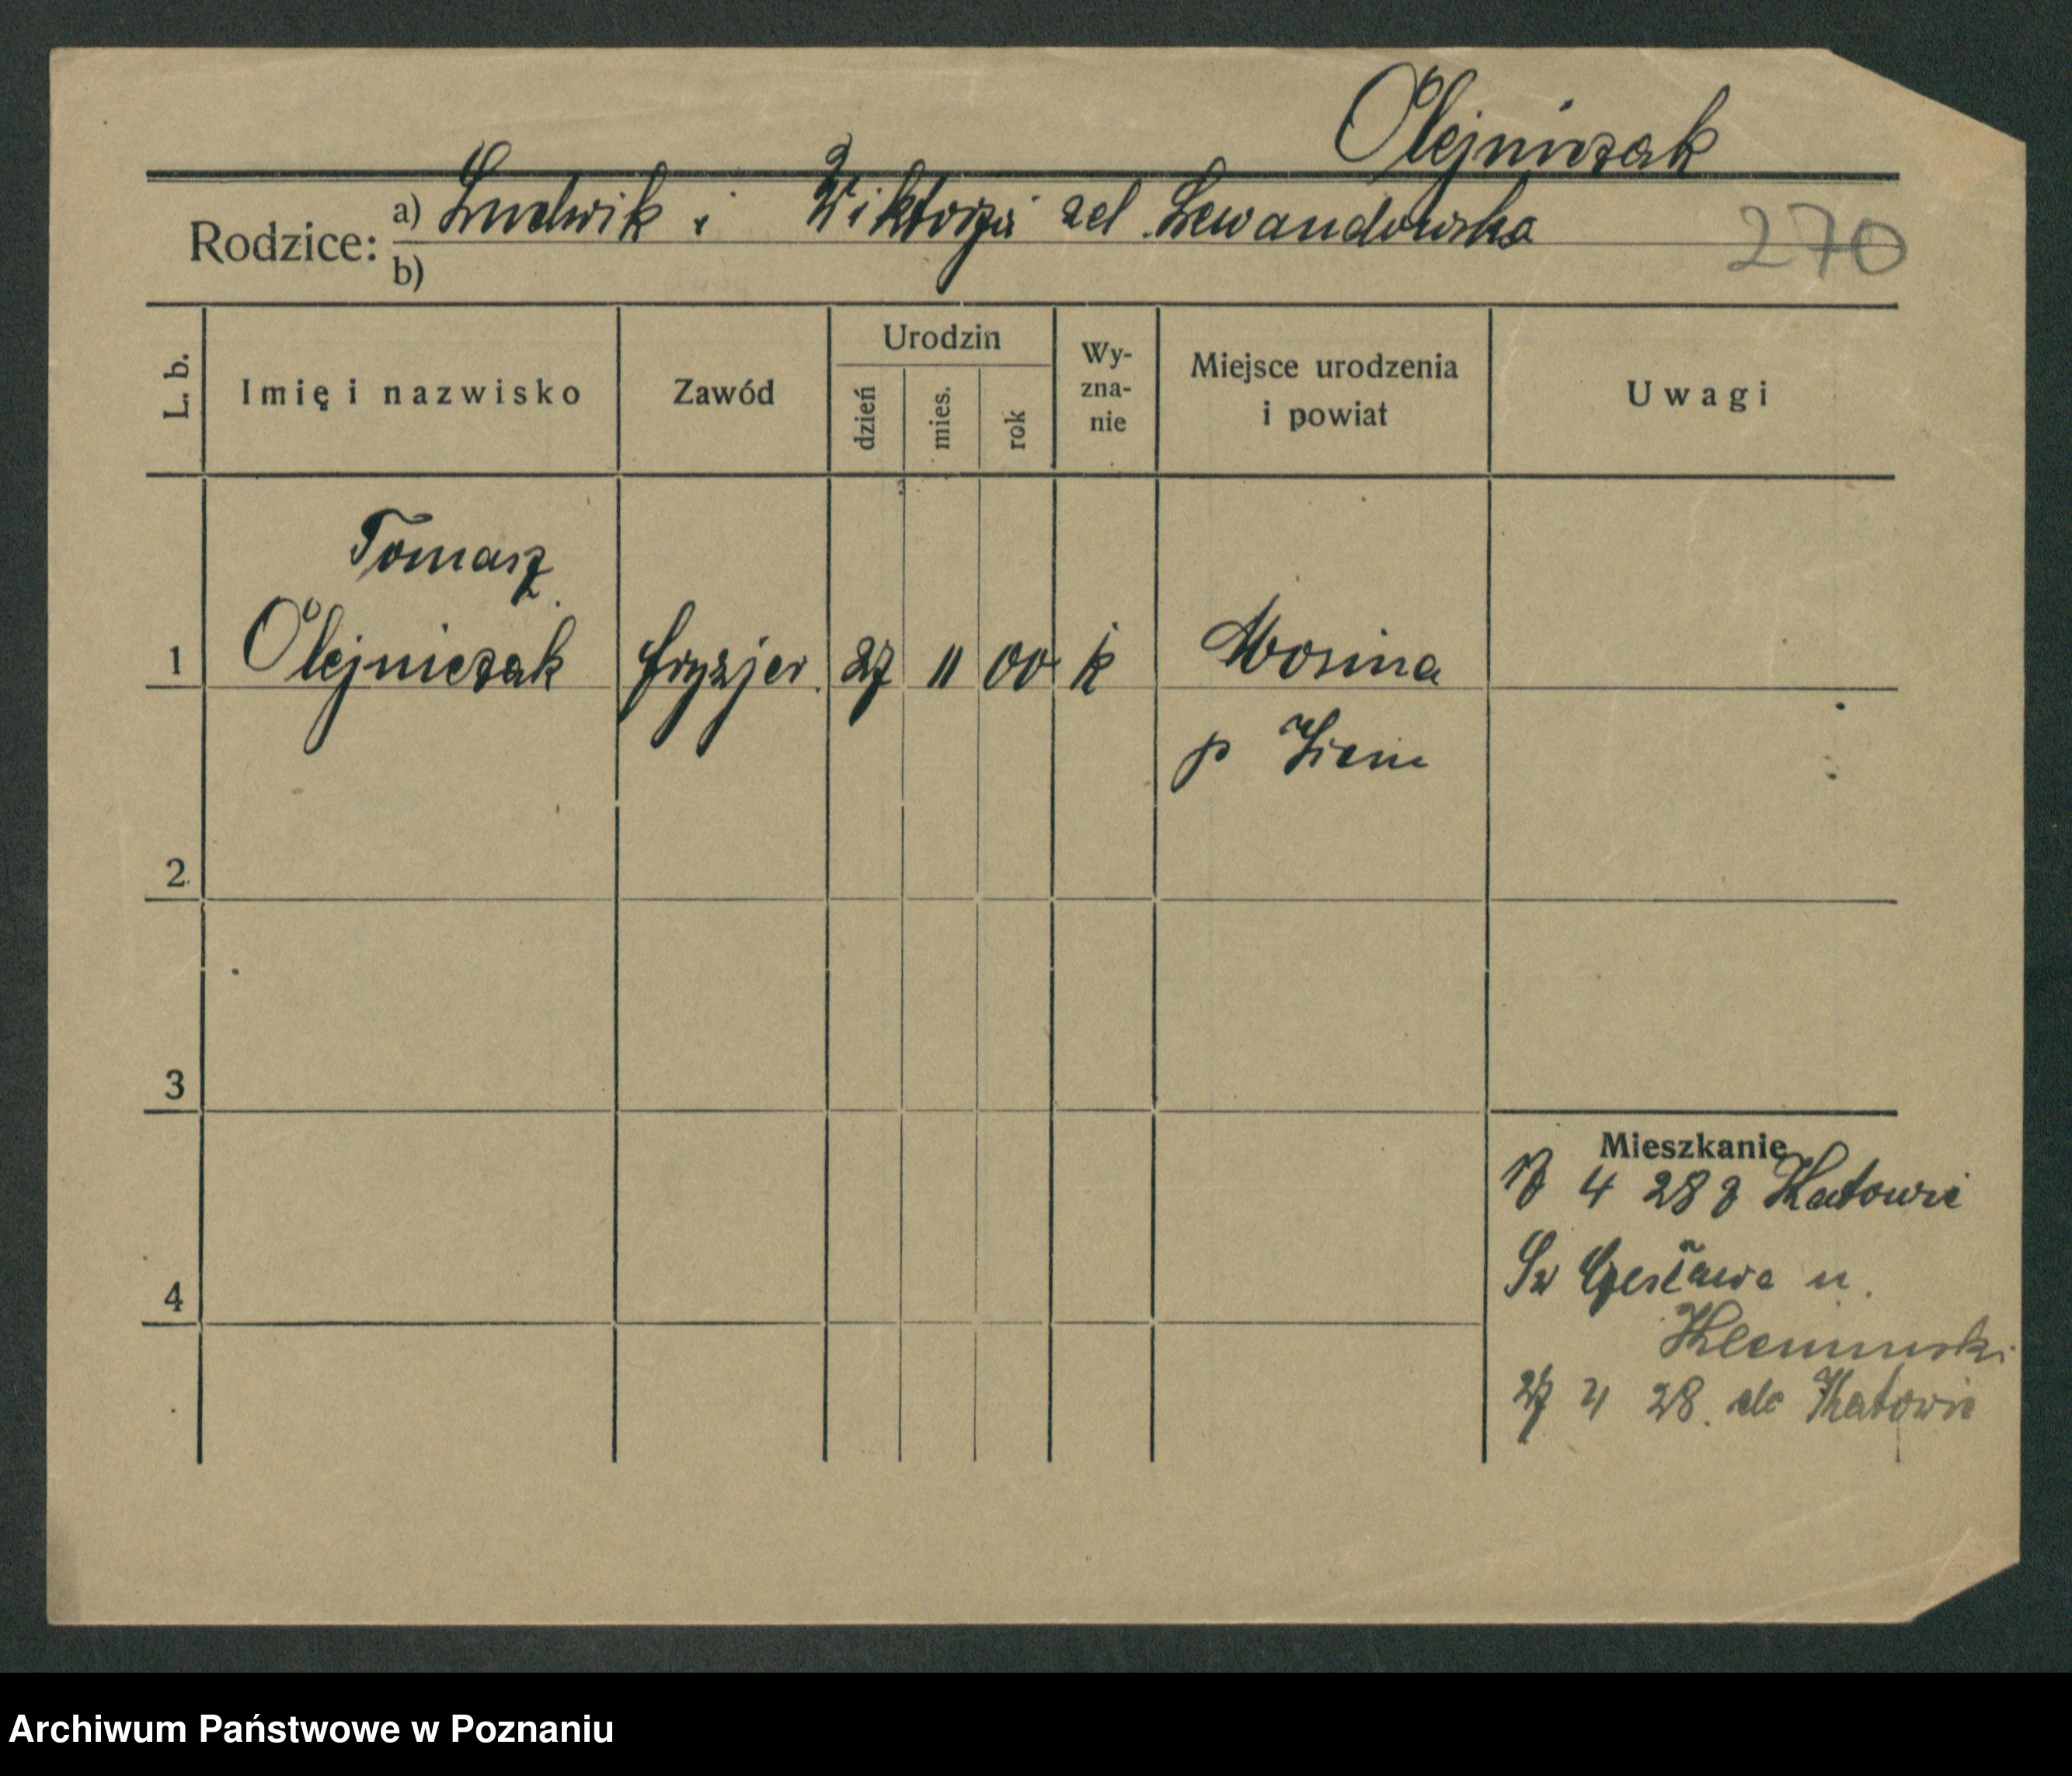 Olejniczak
Rodzice: a) Ludwik i Wiktorja zd Lewandowska
b)
270
L. b. Imię i nazwisko Zawód Urodzin dzień mies. rok Wy-zna-nie Miejsce urodzenia i powiat Uwagi
Tomasz
1 Olejniczak fryzjer 27 11 00 k Mosina
p
2
3
Mieszkanie
4 28 z Katowic
Św Czesława u.
4
27 4 28. do Katowic
Archiwum Państwowe w Poznaniu